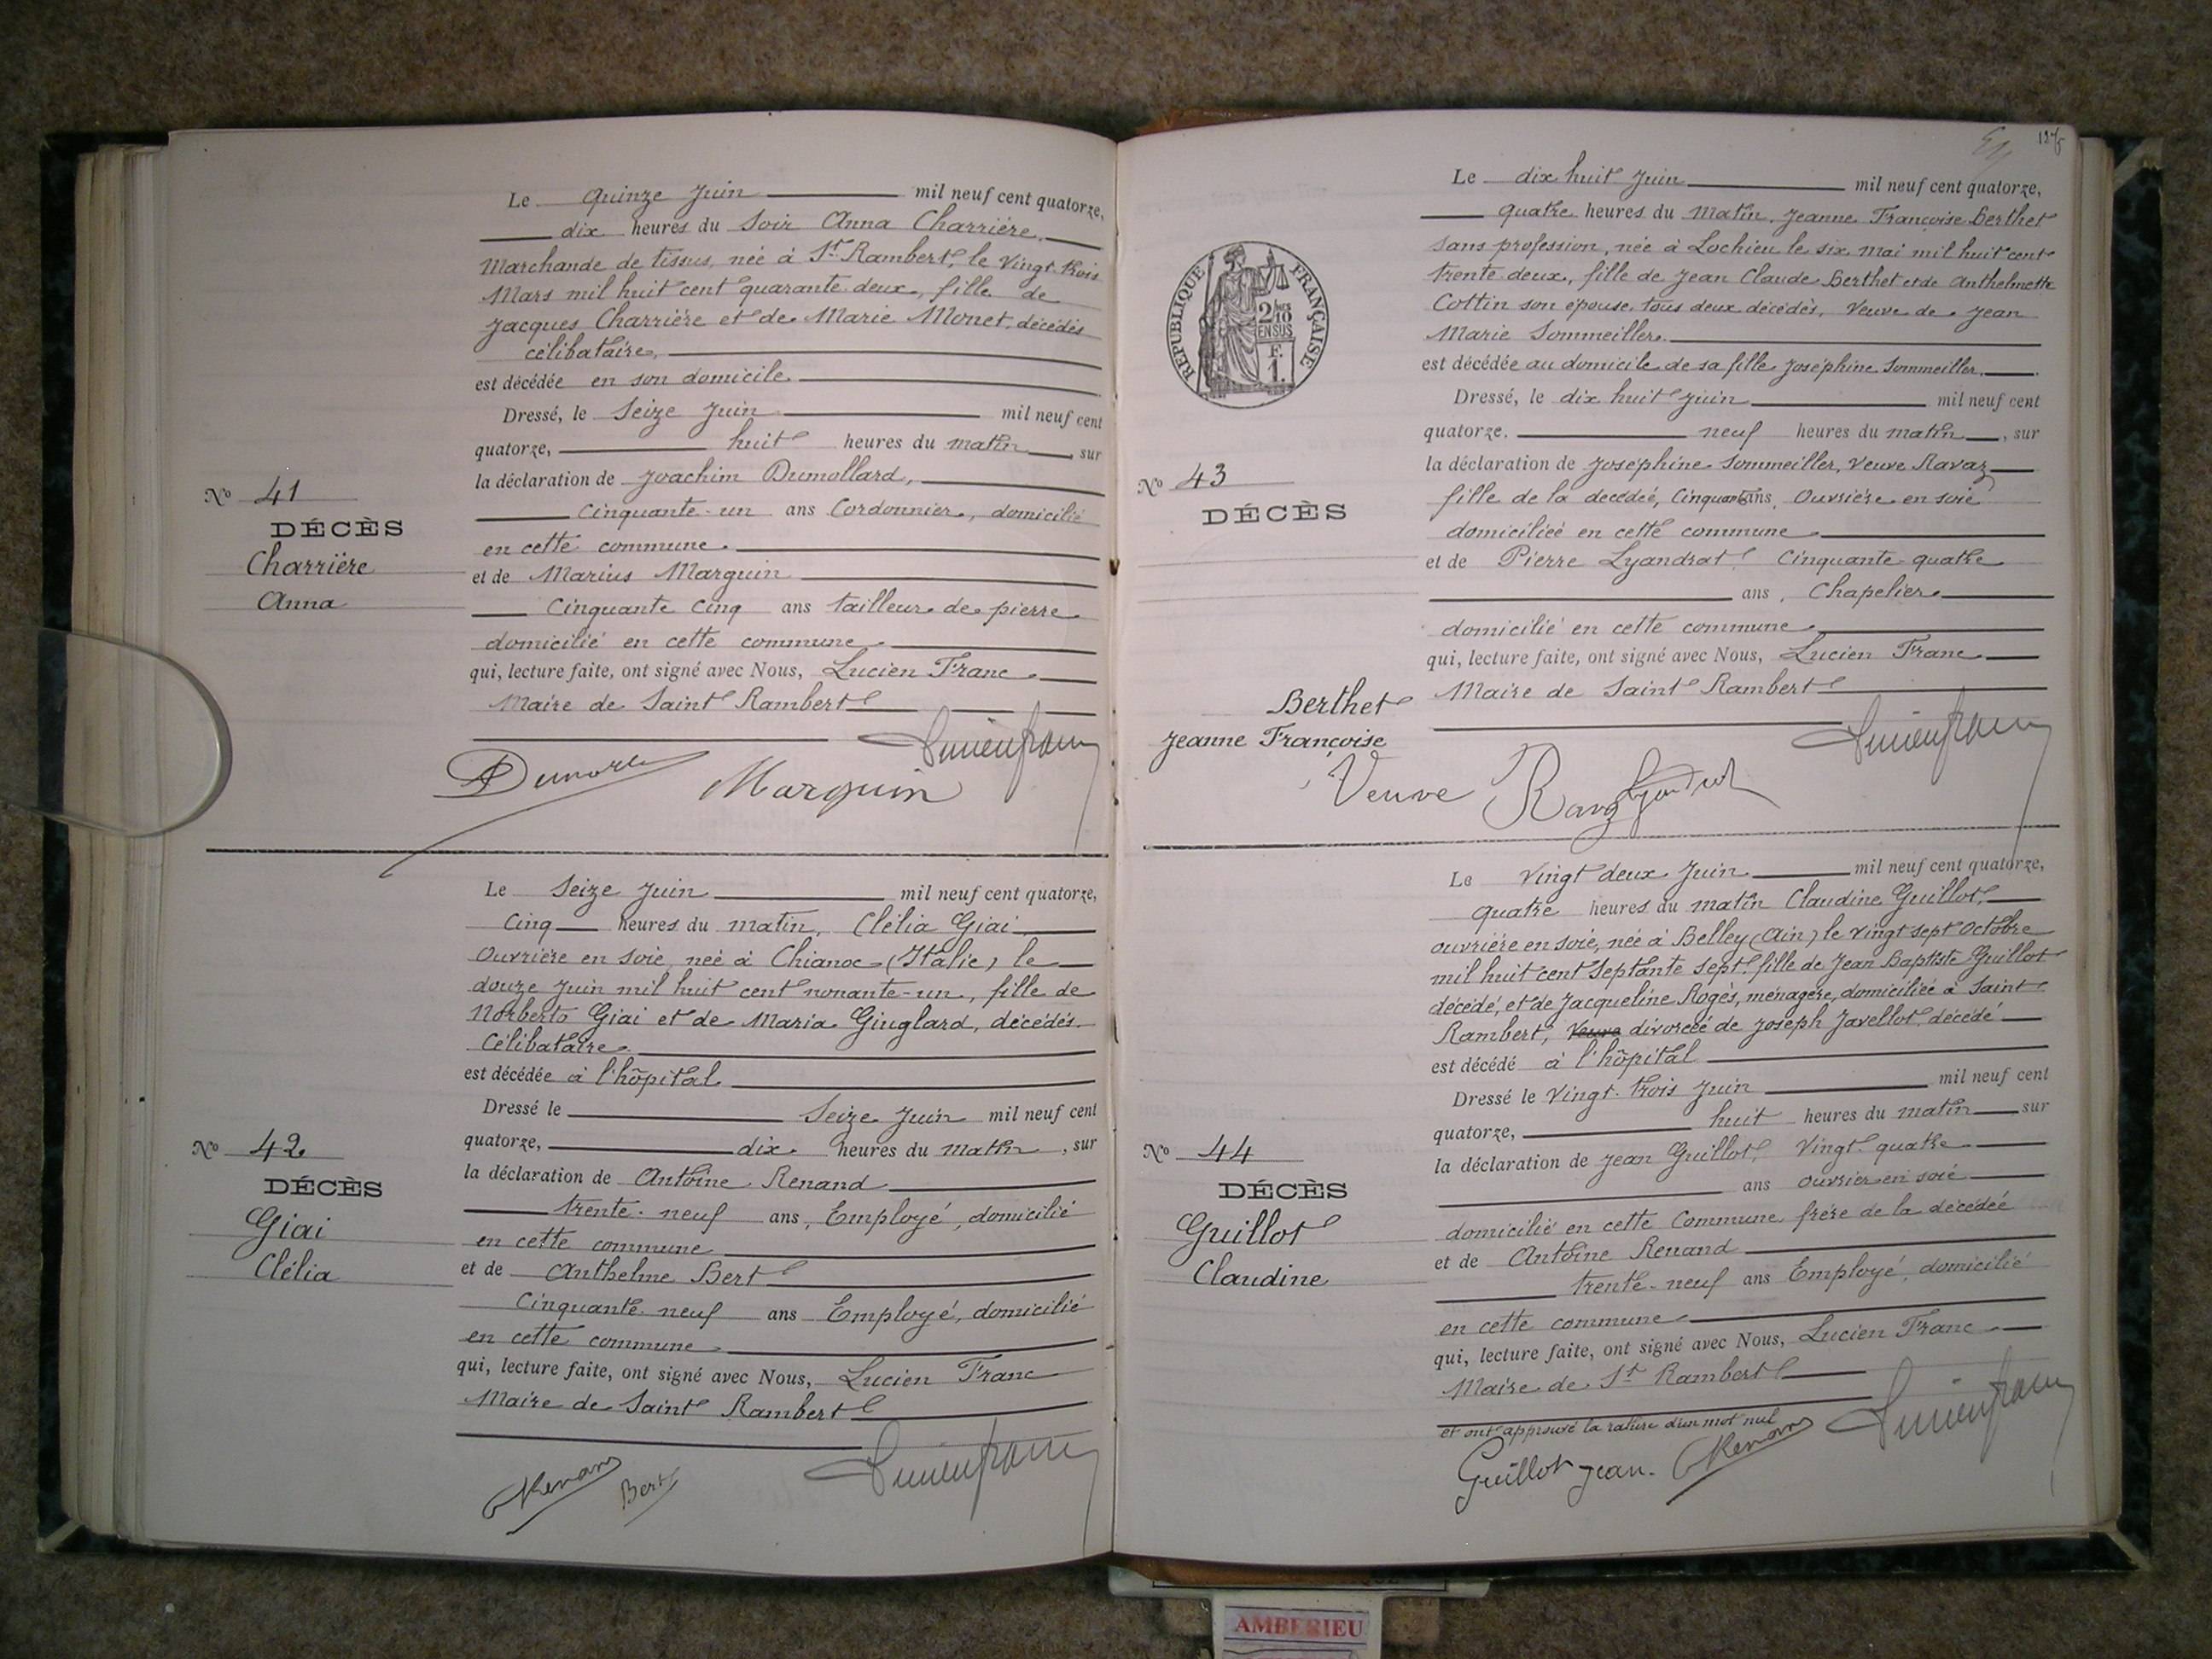 Le quinze Juin mil neuf cent quatorze,
dix heures du soir Anna Charrière,
Marchande de tissus, née à St Rambert, le vingt-trois
Mars mil huit cent quarante-deux, fille de
Jacques Charrière et de Marie Monet, décédés
célibataire,
est décédée en son domicile
Dressé, le Seize Juin mil neuf cent
quatorze, huit heures du matin, sur
la déclaration de Joachim Dumollard,
Cinquante-un ans Cordonnier, domicilié
en cette commune
et de Marius Marguin
Cinquante cinq ans tailleur de pierre
domicilié en cette commune
qui, lecture faite, ont signé avec Nous, Lucien Franc
Maire de Saint Rambert
Nº 41
DÉCÈS
Charrière
Anna
Marguin
Le Seize Juin mil neuf cent quatorze,
Cinq heures du matin, Clélia Giai
Ouvrière en soie, née à Chianoc (Italie) le
douze Juin mil huit cent nonante-un, fille de
Norberto Giai et de Maria Giuglard, décédés
Célibataire
est décédée à l'hôpital
Dressé le Seize Juin mil neuf cent
quatorze, dix heures du matin, sur
la déclaration de Antoine Renand
trente-neuf ans, Employé, domicilié
en cette commune
et de Anthelme Bert
Cinquante-neuf ans Employé, domicilié
en cette commune
qui, lecture faite, ont signé avec Nous, Lucien Franc
Maire de Saint Rambert
Nº 42
DÉCÈS
Giai
Clélia
Renand Bert
RÉPUBLIQUE FRANÇAISE
2/10
EN SUS
F.
1.
Le dix huit Juin mil neuf cent quatorze,
quatre heures du matin, Jeanne Françoise Berthet
sans profession, née à Lochieu le six mai mil huit cent
trente-deux, fille de Jean Claude Berthet et de Anthelmette
Cottin son épouse, tous deux décédés, veuve de Jean
Marie Sommeiller
est décédée au domicile de sa fille Joséphine Sommeiller
Dressé, le dix huit juin mil neuf cent
quatorze, neuf heures du matin, sur
la déclaration de Joséphine Sommeiller, veuve Ravaz
fille de la décédée, Cinquante ans, Ouvrière en soie
domiciliée en cette commune
et de Pierre Lyandrat Cinquante-quatre
ans, Chapelier
domicilié en cette commune
qui, lecture faite, ont signé avec Nous, Lucien Franc
Maire de Saint Rambert
Nº 43
DÉCÈS
Berthet
Jeanne Françoise
Veuve Ravaz
Le Vingt deux Juin mil neuf cent quatorze,
quatre heures du matin Claudine Guillot,
ouvrière en soie, née à Belley (Ain) le vingt sept Octobre
mil huit cent Septante sept, fille de Jean Baptiste Guillot
décédé, et de Jacqueline Rogès, ménagère, domiciliée à Saint-
Rambert, Veuve divorcée de Joseph Javellot, décédé
est décédé à l'hôpital
Dressé le Vingt-trois Juin mil neuf cent
quatorze, huit heures du matin sur
la déclaration de Jean Guillot, Vingt-quatre
ans ouvrier en soie
domicilié en cette Commune, frère de la décédée
et de Antoine Renand
trente-neuf ans Employé, domicilié
en cette commune
qui, lecture faite, ont signé avec Nous, Lucien Franc
Maire de St Rambert
et ont approuvé la rature d'un mot nul
Nº 44
DÉCÈS
Guillot
Claudine
Guillot Jean Renand
AMBERIEU